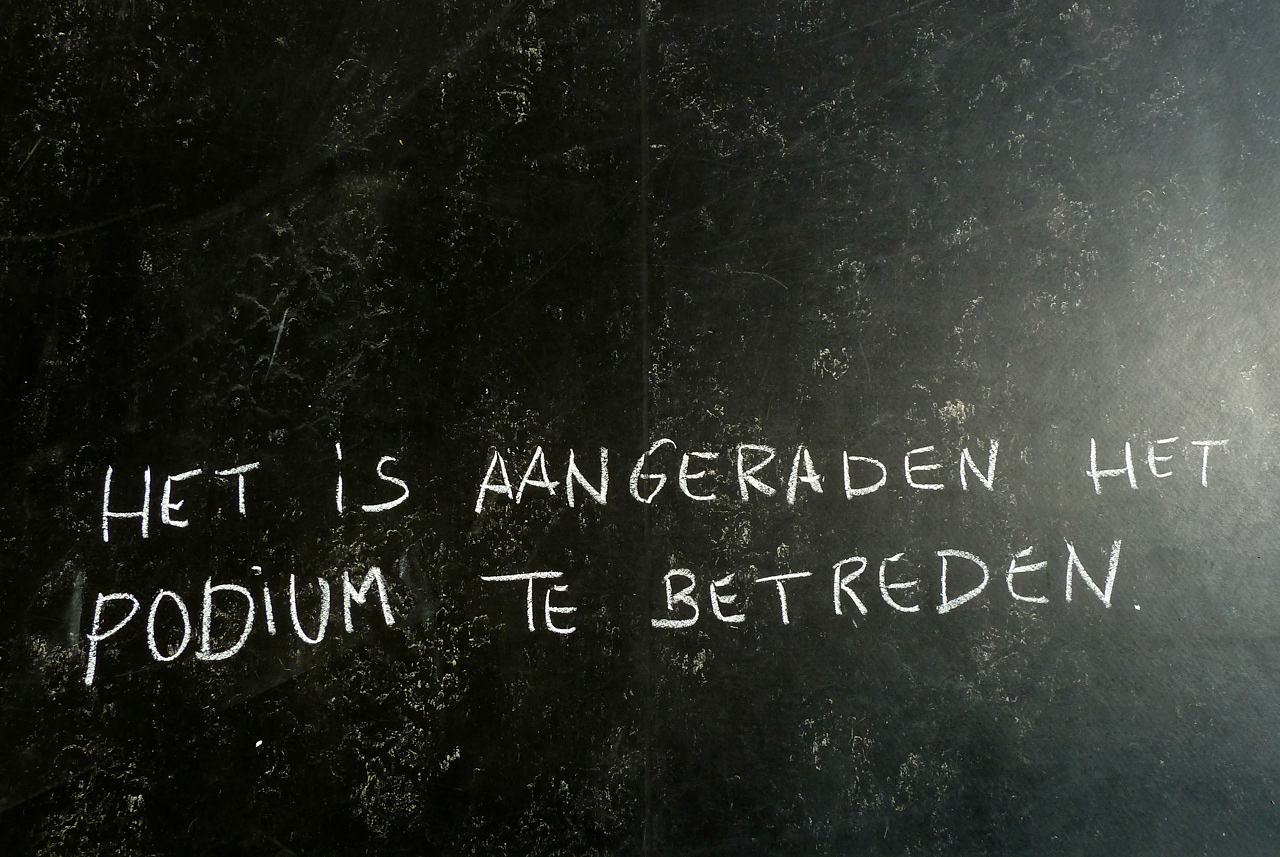 HET iS AANGERADEN HET
PODiUM TE BETREDEN.